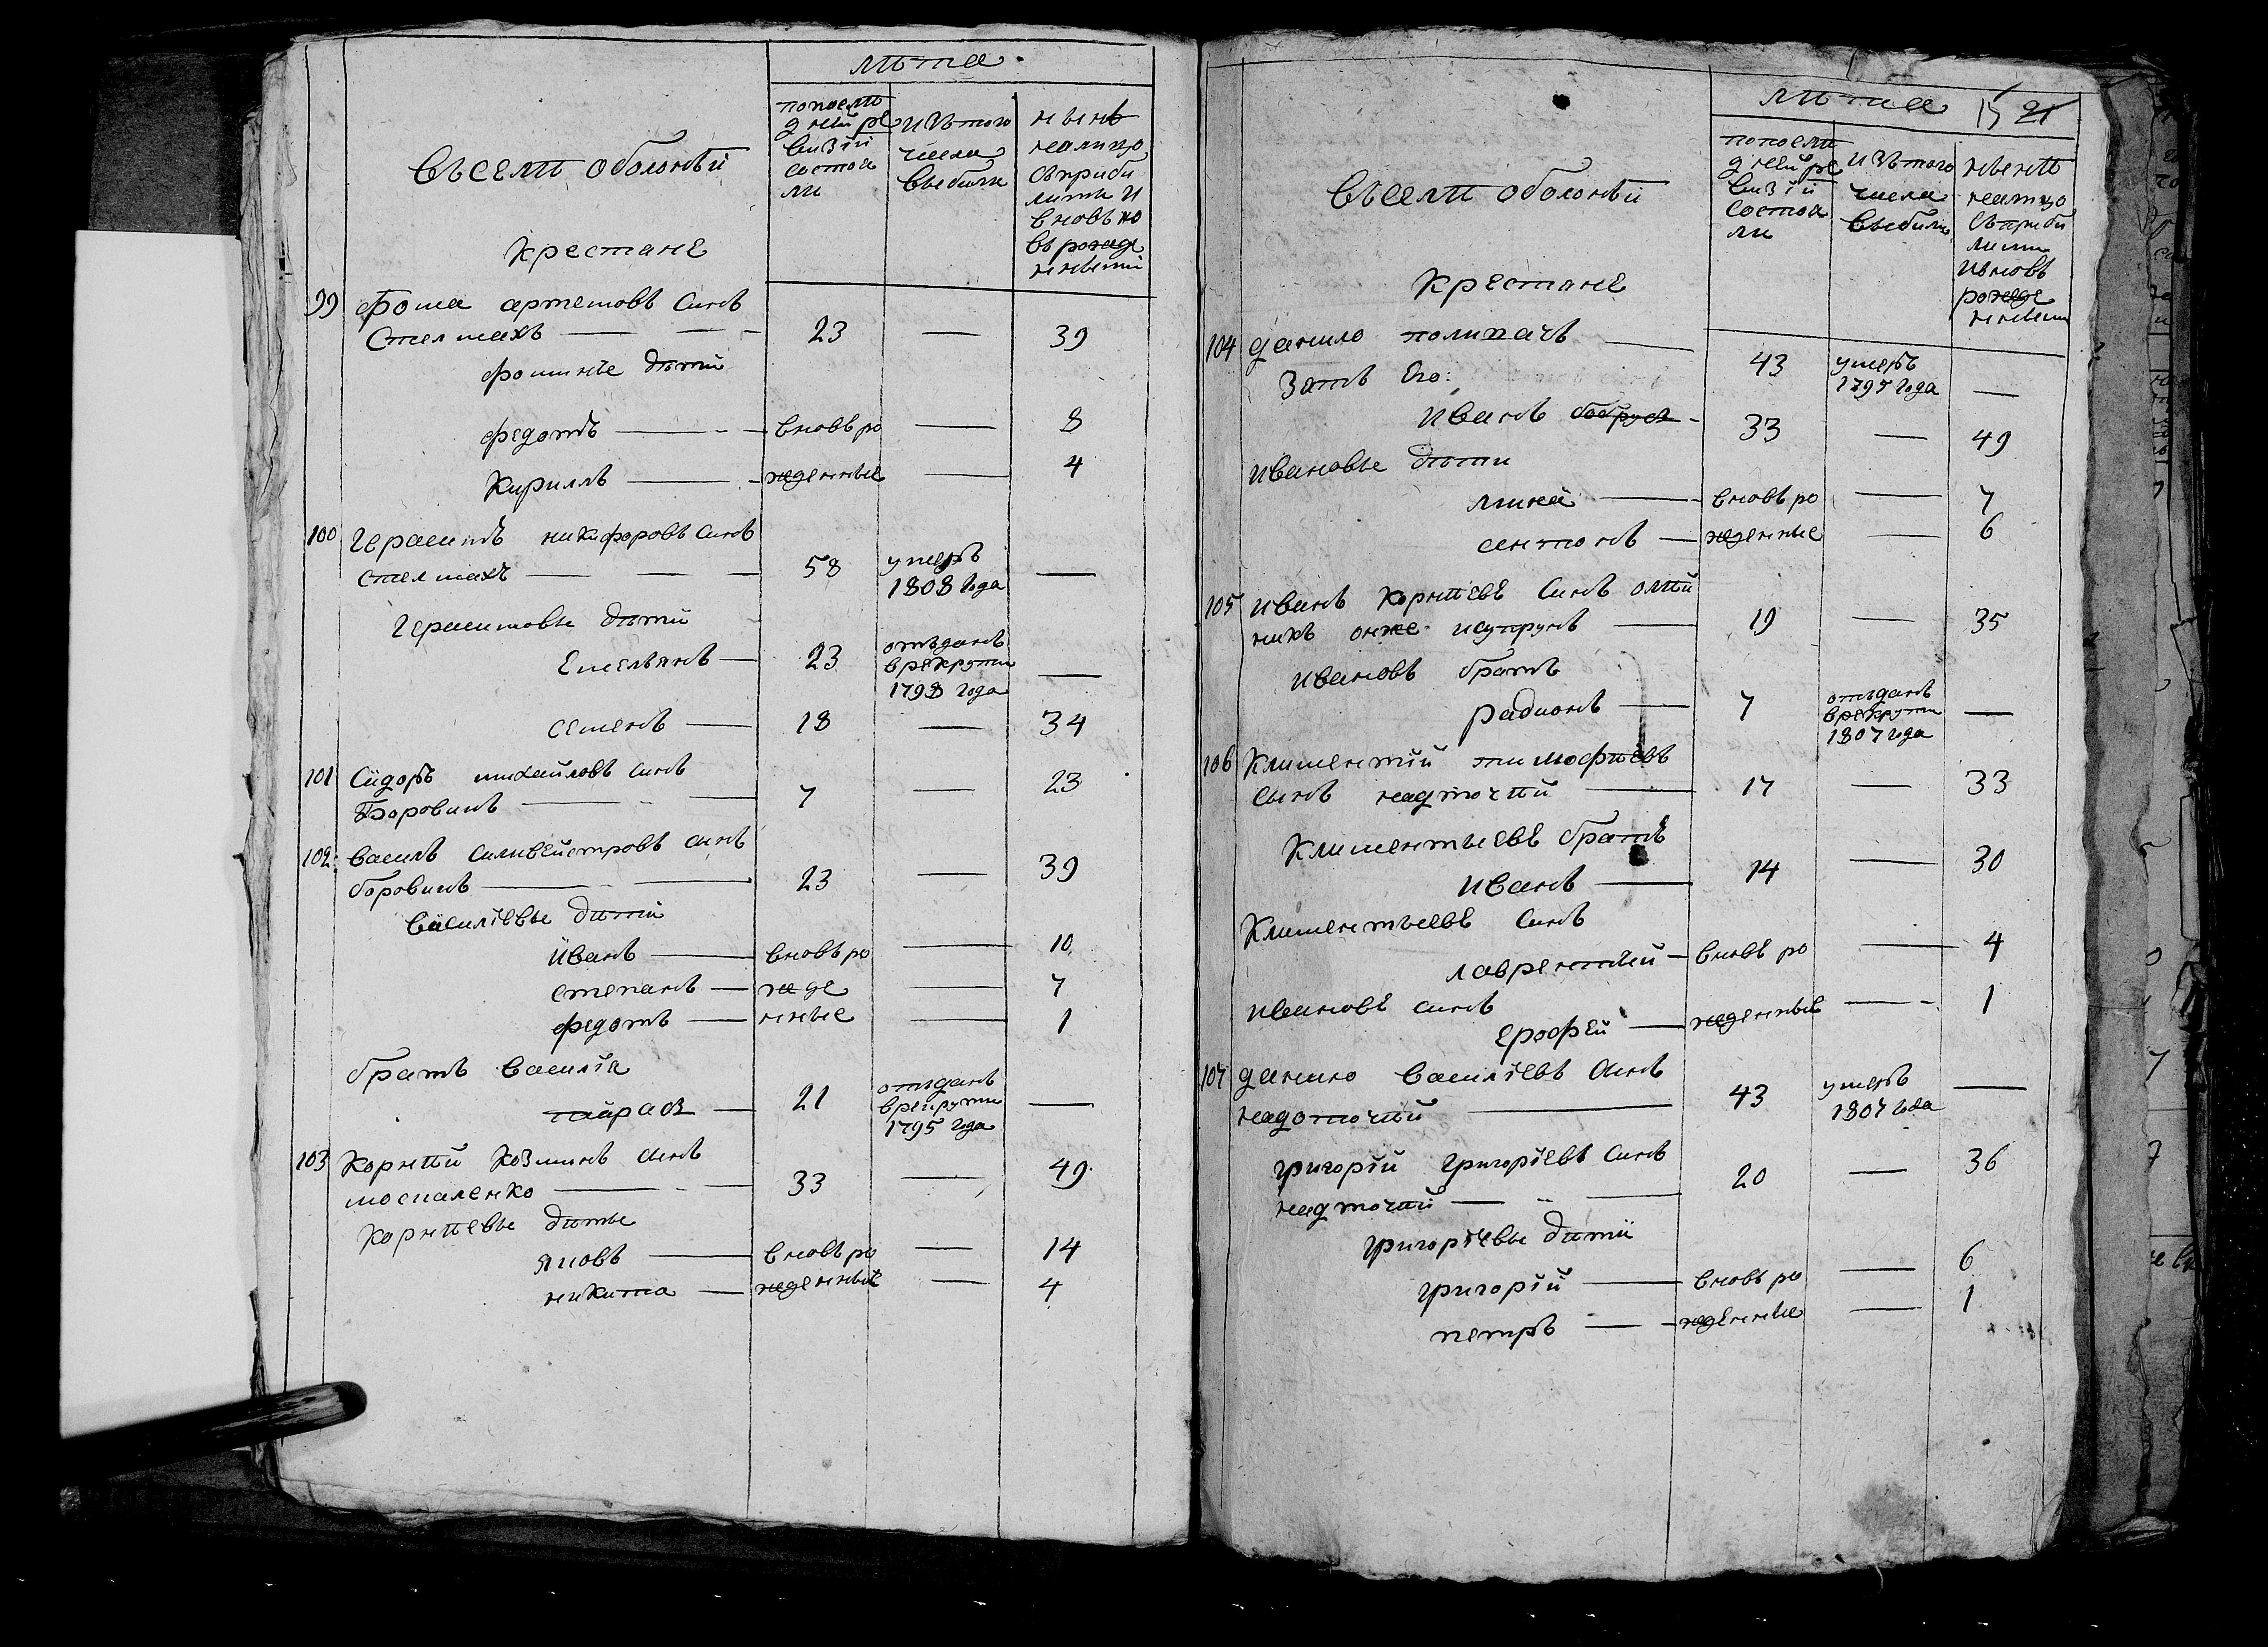 лѣта
попослѣ
дней ре
визіи
состоя
ли
изъ того
числа
выбыли
нынѣ
налицо
съприбы
лыми и
вновь
рожде
нными
Въселѣ оболонѣи
Крестяне
99 Фома артемовъ синъ
Стелмахъ — 23 — 39
фомины дѣти
федотъ — вновь ро — 8
Кирилъ — жденные — 4
100 Герасимъ никифоровъ синъ
стелмахъ — 58 умеръ 1808 года —
Герасимовы дѣти
Емельянъ — 23 отъданъ врекруты 1798 года —
семенъ — 18 — 34
101 Сидоръ михайловъ синъ
Боровикъ — 7 — 23
102 василь силивейстровъ синъ
боровикъ — 23 — 39
василіевы дѣти
иванъ — вновь ро — 10
степанъ — жде — 7
федотъ — нные — 1
братъ василія
тарасъ — 21 отъданъ врекруты 1795 года —
103 Корнѣй козминъ синъ
москаленко — 33 — 49
корнѣевы дѣты
яковъ — вновь ро — 14
никита — жденные — 4
лѣта 15 21
попослѣ
дней ре
визіи
состоя
ли
изъ того
числа
выбыли
нынѣ
налицо
съприбы
лыми
ивновь
рожде
нными
Въселѣ оболонѣи
Крестяне
104 данило поли
зять его: 43 умеръ 1795 года —
иванъ — 33 — 49
ивановы дѣти
мина — вновь ро — 7
антонъ — жденные — 6
105 иванъ корнѣевъ синъ олѣй
никъ онже — 19 — 35
ивановъ братъ
радионъ — 7 отъданъ врекруты 1807 года —
106 Климентій тимофѣевъ
сынъ надточѣй — 17 — 33
Климентьевъ братъ
иванъ — 14 — 30
Климентьевъ синъ
лаврентьй — вновь ро — 4
ивановъ синъ
ерофей — жденные — 1
107 данило василіевъ синъ
надоточѣй — 43 умеръ 1807 года —
григорій григоріевъ синъ
надточѣй — 20 — 36
григоріевы дѣти
григорій — вновь ро — 6
петръ — жденные — 1